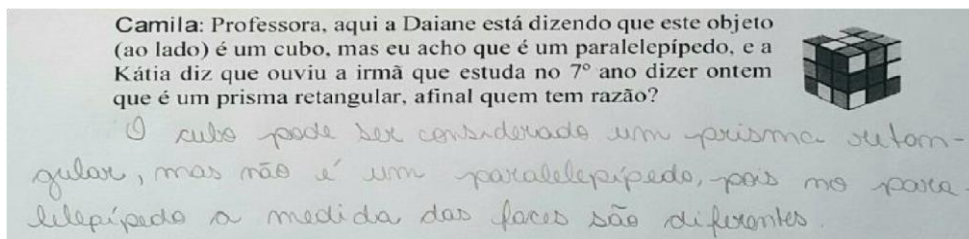 Camila: Professora, aqui a Daiane está dizendo que este objeto
(ao lado) é um cubo, mas eu acho que é um paralelepípedo, e a
Kátia diz que ouviu a irmã que estuda no 7º ano dizer ontem
que é um prisma retangular, afinal quem tem razão?
O cubo pode ser considerado um prisma retan-
gular, mas não é um paralelepípedo, pois no para-
lelepípedo a medida das faces são diferentes.